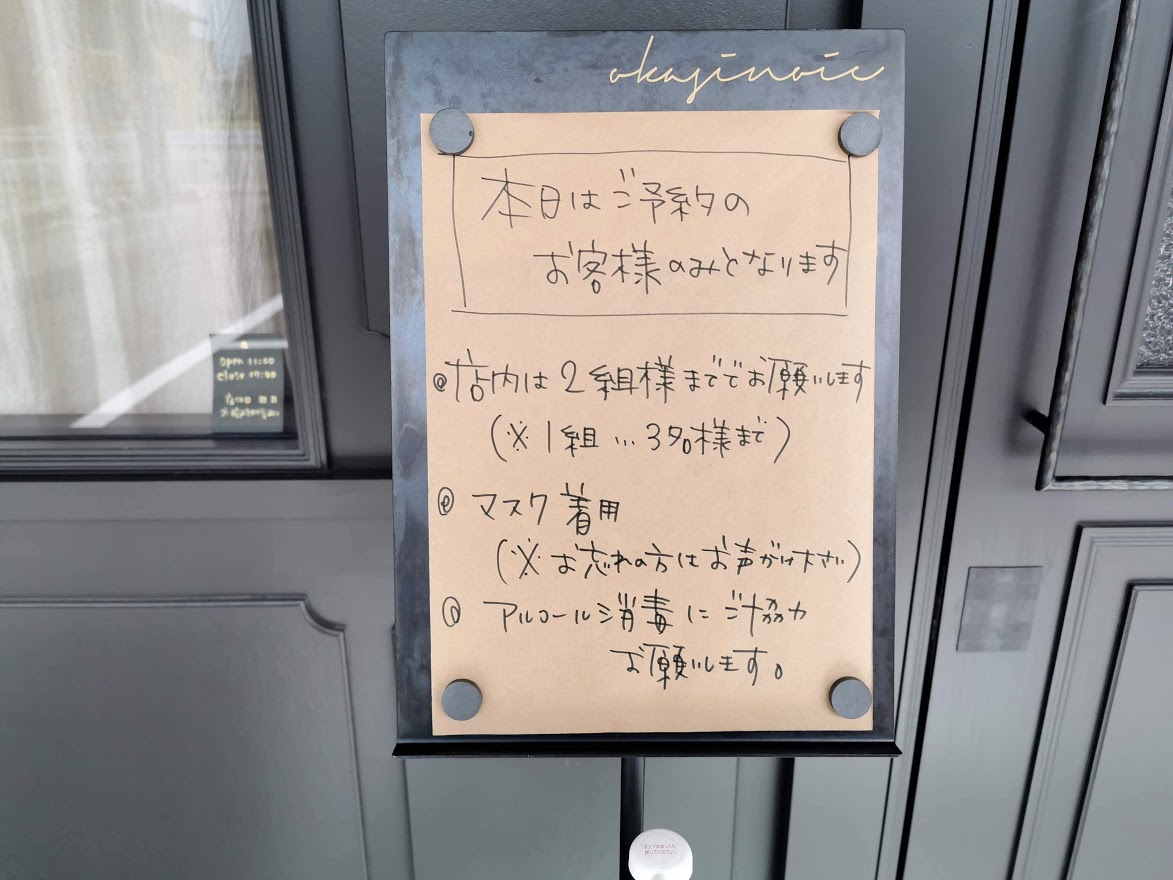 okaginoie
本日はご予約の
お客様のみとなります
@店内は2組様まででお願いします
(※1組…3名様まで)
@マスク着用
(※お忘れの方はお声がけ下さい)
@アルコール消毒にご協力
お願いします。
open 11:00
close 17:00